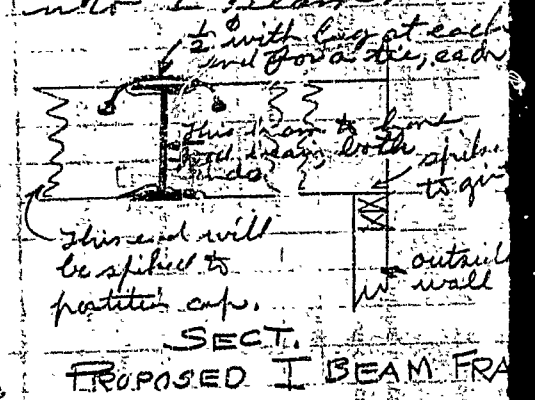 ½ φ with lug at each
end for a tie, each
This beam to have
good bearing both
ends
spike
to gir
This end will
be spiked to
partition cap.
outside
wall
SECT.
PROPOSED I BEAM FRA